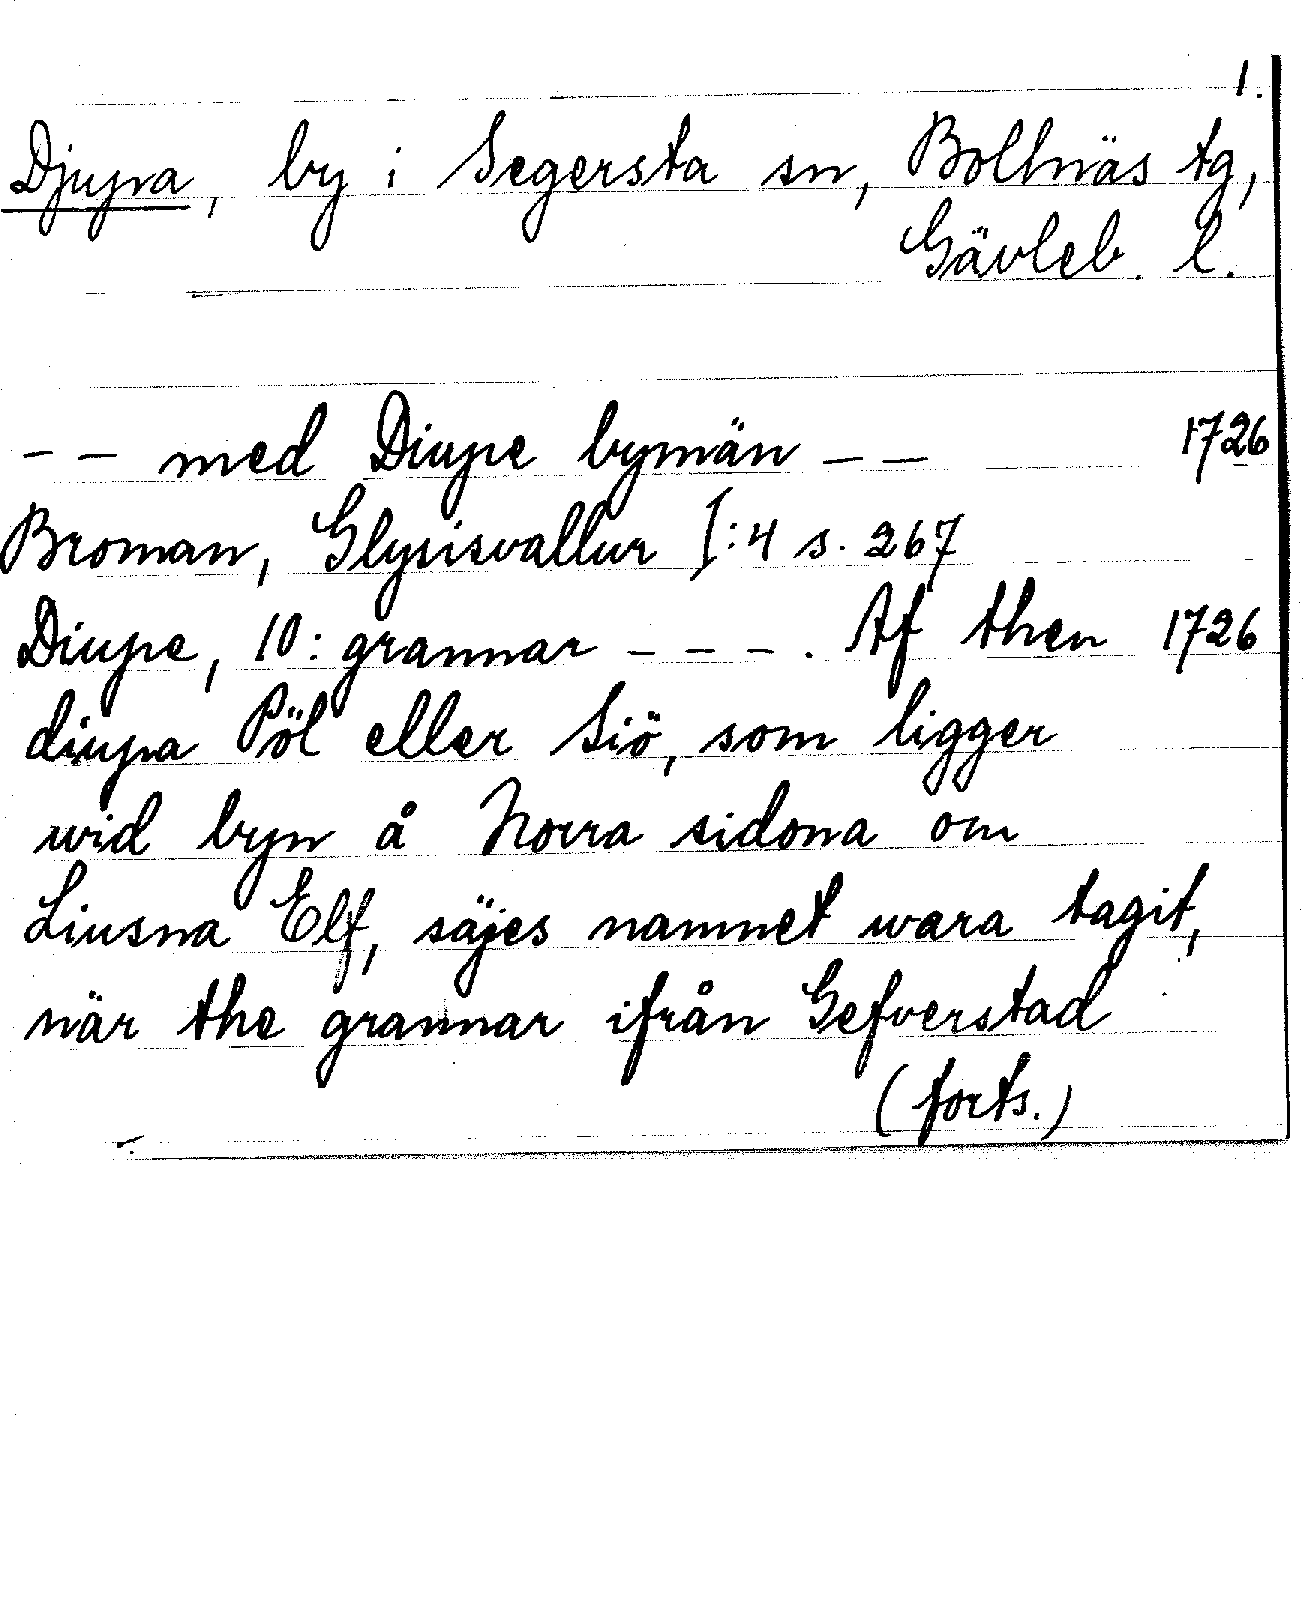 1.
Djupa, by i Segersta sn, Bollnäs tg,
Gävleb. l.
-- med Diupe bymän -- 1726
Broman, Glysisvallur I:4 s. 267
Diupe, 10: grannar ---. Af then 1726
diupa Pöl eller Siö, som ligger
wid byn å Norra sidona om
Liusna Elf, säjes namnet wara tagit,
när the grannar ifrån Gefverstad
(forts.)